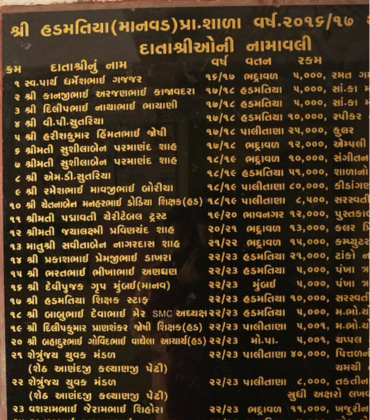 શ્રી હડમતિયા(માનવડ)પ્રા.શાળા વર્ષ.૨૦૧૬/૧૭
દાતાશ્રીઓની નામાવલી
ક્રમ દાતાશ્રીનું નામ વર્ષ વતન રકમ
૧ સ્વ.પાર્થ ધર્મેશભાઈ ગજજર ૧૬/૧૭ ભદ્રાવળ ૫,૦૦૦, રમત
૨ શ્રી કાનજીભાઈ અરજણભાઈ કાજાવદરા ૧૭/૧૮ હડમતિયા ૫,૦૦૦, સાં.કા
૩ શ્રી દિલીપભાઈ નાથાભાઈ ભાયાણી ૧૭/૧૮ હડમતિયા ૫,૦૦૦, સાં.કા
૪ શ્રી વી.પી.સુતરિયા ૧૭/૧૮ હડમતિયા ૧૦,૦૦૦, સ્પીકર
૫ શ્રી હરીશકુમાર હિંમતભાઈ જોષી ૧૭/૧૮ પાલીતાણા ૨૫,૦૦૦, કુલર
૬ શ્રીમતી સુશીલાબેન પરમાણંદ શાહ ૧૭/૧૮ ભદ્રાવળ ૧૨,૦૦૦, એમ્પલી
૭ શ્રીમતી સુશીલાબેન પરમાણંદ શાહ ૧૮/૧૯ ભદ્રાવળ ૧૦,૦૦૦, સંગીતન
૮ શ્રી એમ.ડી.સુતરિયા ૧૮/૧૯ હડમતિયા ૫૧,૦૦૦, શાળાનો
૯ શ્રી રમેશભાઈ માવજીભાઈ બોરીચા ૧૮/૧૯ પાલીતાણા ૮૦,૦૦૦, કીડાંગણ
૧૦ શ્રી ચેતનાબેન મનહરભાઈ ડોડિયા શિક્ષક(હડ) ૧૮/૧૯ પાલીતાણા ૮,૫૦૦, સરસ્વતી
૧૧ શ્રીમતી પદ્માવતી ચેરીટેબલ ટ્રસ્ટ ૧૯/૨૦ ભાવનગર ૧૨,૦૦૦, પુસ્તકાલ
૧૨ શ્રીમતી જયાલક્ષ્મી પ્રવિણચંદ્ર શાહ ૨૦/૨૧ ભદ્રાવળ ૧૩,૦૦૦, કલર
૧૩ માતુશ્રી સવીતાબેન નાગરદાસ શાહ ૨૧/૨૨ ભદ્રાવળ ૧૫,૦૦૦, કમ્પ્યુટર
૧૪ શ્રી પ્રકાશભાઈ પ્રેમજીભાઈ ડાખરા ૨૨/૨૩ હડમતિયા ૨૧,૦૦૦, ટાંકો
૧૫ શ્રી ભરતભાઈ ભીખાભાઈ અણઘણ ૨૨/૨૩ હડમતિયા ૫,૦૦૦, પંખા
૧૬ શ્રી દેવીપૂજક ગૃપ મુંબઈ(માનવ) ૨૨/૨૩ મુંબઈ ૫,૦૦૦, પંખા
૧૭ શ્રી હડમતિયા શિક્ષક સ્ટાફ ૨૨/૨૩ હડમતિયા ૧૦,૦૦૦, સરસ્વતી
૧૮ શ્રી બાબુભાઈ દેવાભાઈ મેર SMC અધ્યક્ષ ૨૨/૨૩ હડમતિયા ૫,૦૦૦, મ.ભો.યો
૧૯ શ્રી દિલીપકુમાર પ્રાણશંકર જોષી શિક્ષક(હડ) ૨૨/૨૩ પાલીતાણા ૫,૦૦૧, મ.ભો.યો
૨૦ શ્રી બહાદુરભાઈ ગોવિંદભાઈ વાઘેલા આચાર્ય(હડ) ૨૨/૨૩ મો.પા. ૫,૦૦૧, ચપ્પલ
૨૧ શેત્રુંજય યુવક મંડળ ૨૨/૨૩ પાલીતાણા ૪૦,૦૦૦, પિત્તળન
(શેઠ આણંદજી કલ્યાણજી પેઢી) ચમચી
૨૨ શેત્રુંજય યુવક મંડળ ૨૨/૨૩ પાલીતાણા ૮,૦૦૦, તકતીન
(શેઠ આણંદજી કલ્યાણજી પેઢી) સુધી અક્ષરો લખ
૨૩ વશરામભાઈ જેરામભાઈ શિહોરા ૨૨/૨૩ ભદ્રાવળ ૧૧,૦૦૦, ખજુરીન